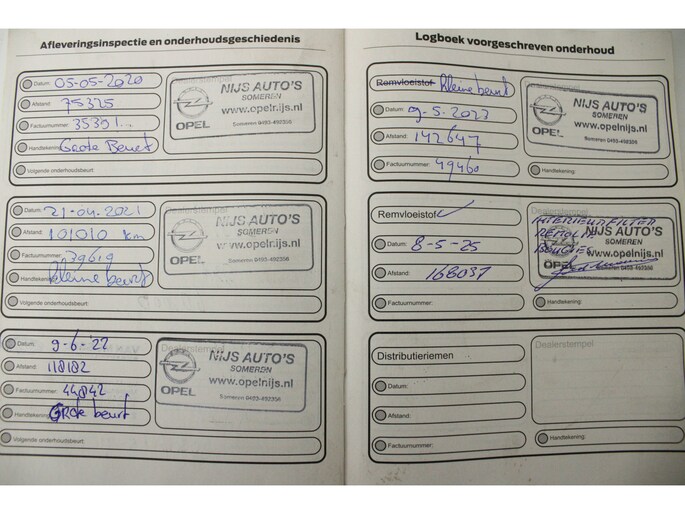 Afleveringsinspectie en onderhoudsgeschiedenis
Datum: 05-05-2020
Afstand: 75325
Factuurnummer: 35391...
Handtekening: Grote Beurt
Volgende onderhoudsbeurt:
OPEL
NIJS AUTO'S
SOMEREN
www.opelnijs.nl
Someren 0493-492306
Datum: 21-04-2021
Afstand: 101010 km
Factuurnummer: 39619
Handtekening: kleine beurt
Volgende onderhoudsbeurt:
Dealerstempel
OPEL
NIJS AUTO'S
SOMEREN
www.opelnijs.nl
Someren 0493-492306
Datum: 9-6-'22
Afstand: 118182
Factuurnummer: 44842
Handtekening: GRote beurt
Volgende onderhoudsbeurt:
Dealerstempel
OPEL
NIJS AUTO'S
SOMEREN
www.opelnijs.nl
Someren 0493-492306
Logboek voorgeschreven onderhoud
Remvloeistof kleine beurt
Datum:
Afstand: 142647
Factuurnummer: 49460
OPEL
NIJS AUTO'S
SOMEREN
www.opelnijs.nl
Someren 0493-492306
Handtekening:
Remvloeistof
Datum: 8-5-25
Afstand: 168037
Factuurnummer:
INTERIEURFILTER
REMOLIE
BOUGIES
NIJS AUTO'S
SOMEREN
www.opelnijs.nl
OPEL
Handtekening:
Distributieriemen
Datum:
Afstand:
Factuurnummer:
Dealerstempel
Handtekening: